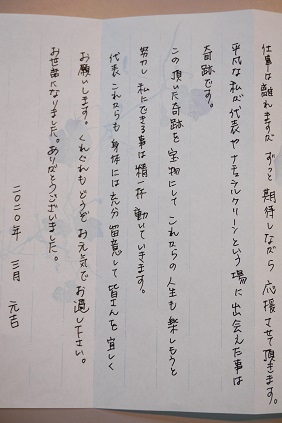 仕事は離れますが ずっと 期待しながら 応援させて頂きます。
平凡な私が代表やナチュラルクリーンという場に出会えた事は
奇跡です。
この頂いた奇跡を宝物にして これからの人生も楽しもうと
努力し 私にできる事は精一杯 動いていきます。
代表 これからも 身体には充分 留意して 皆さんを 宜しく
お願いします。くれぐれもどうぞ お元気でお過し下さい。
お世話になりました。ありがとうございました。
二〇二〇年 三月 元吉